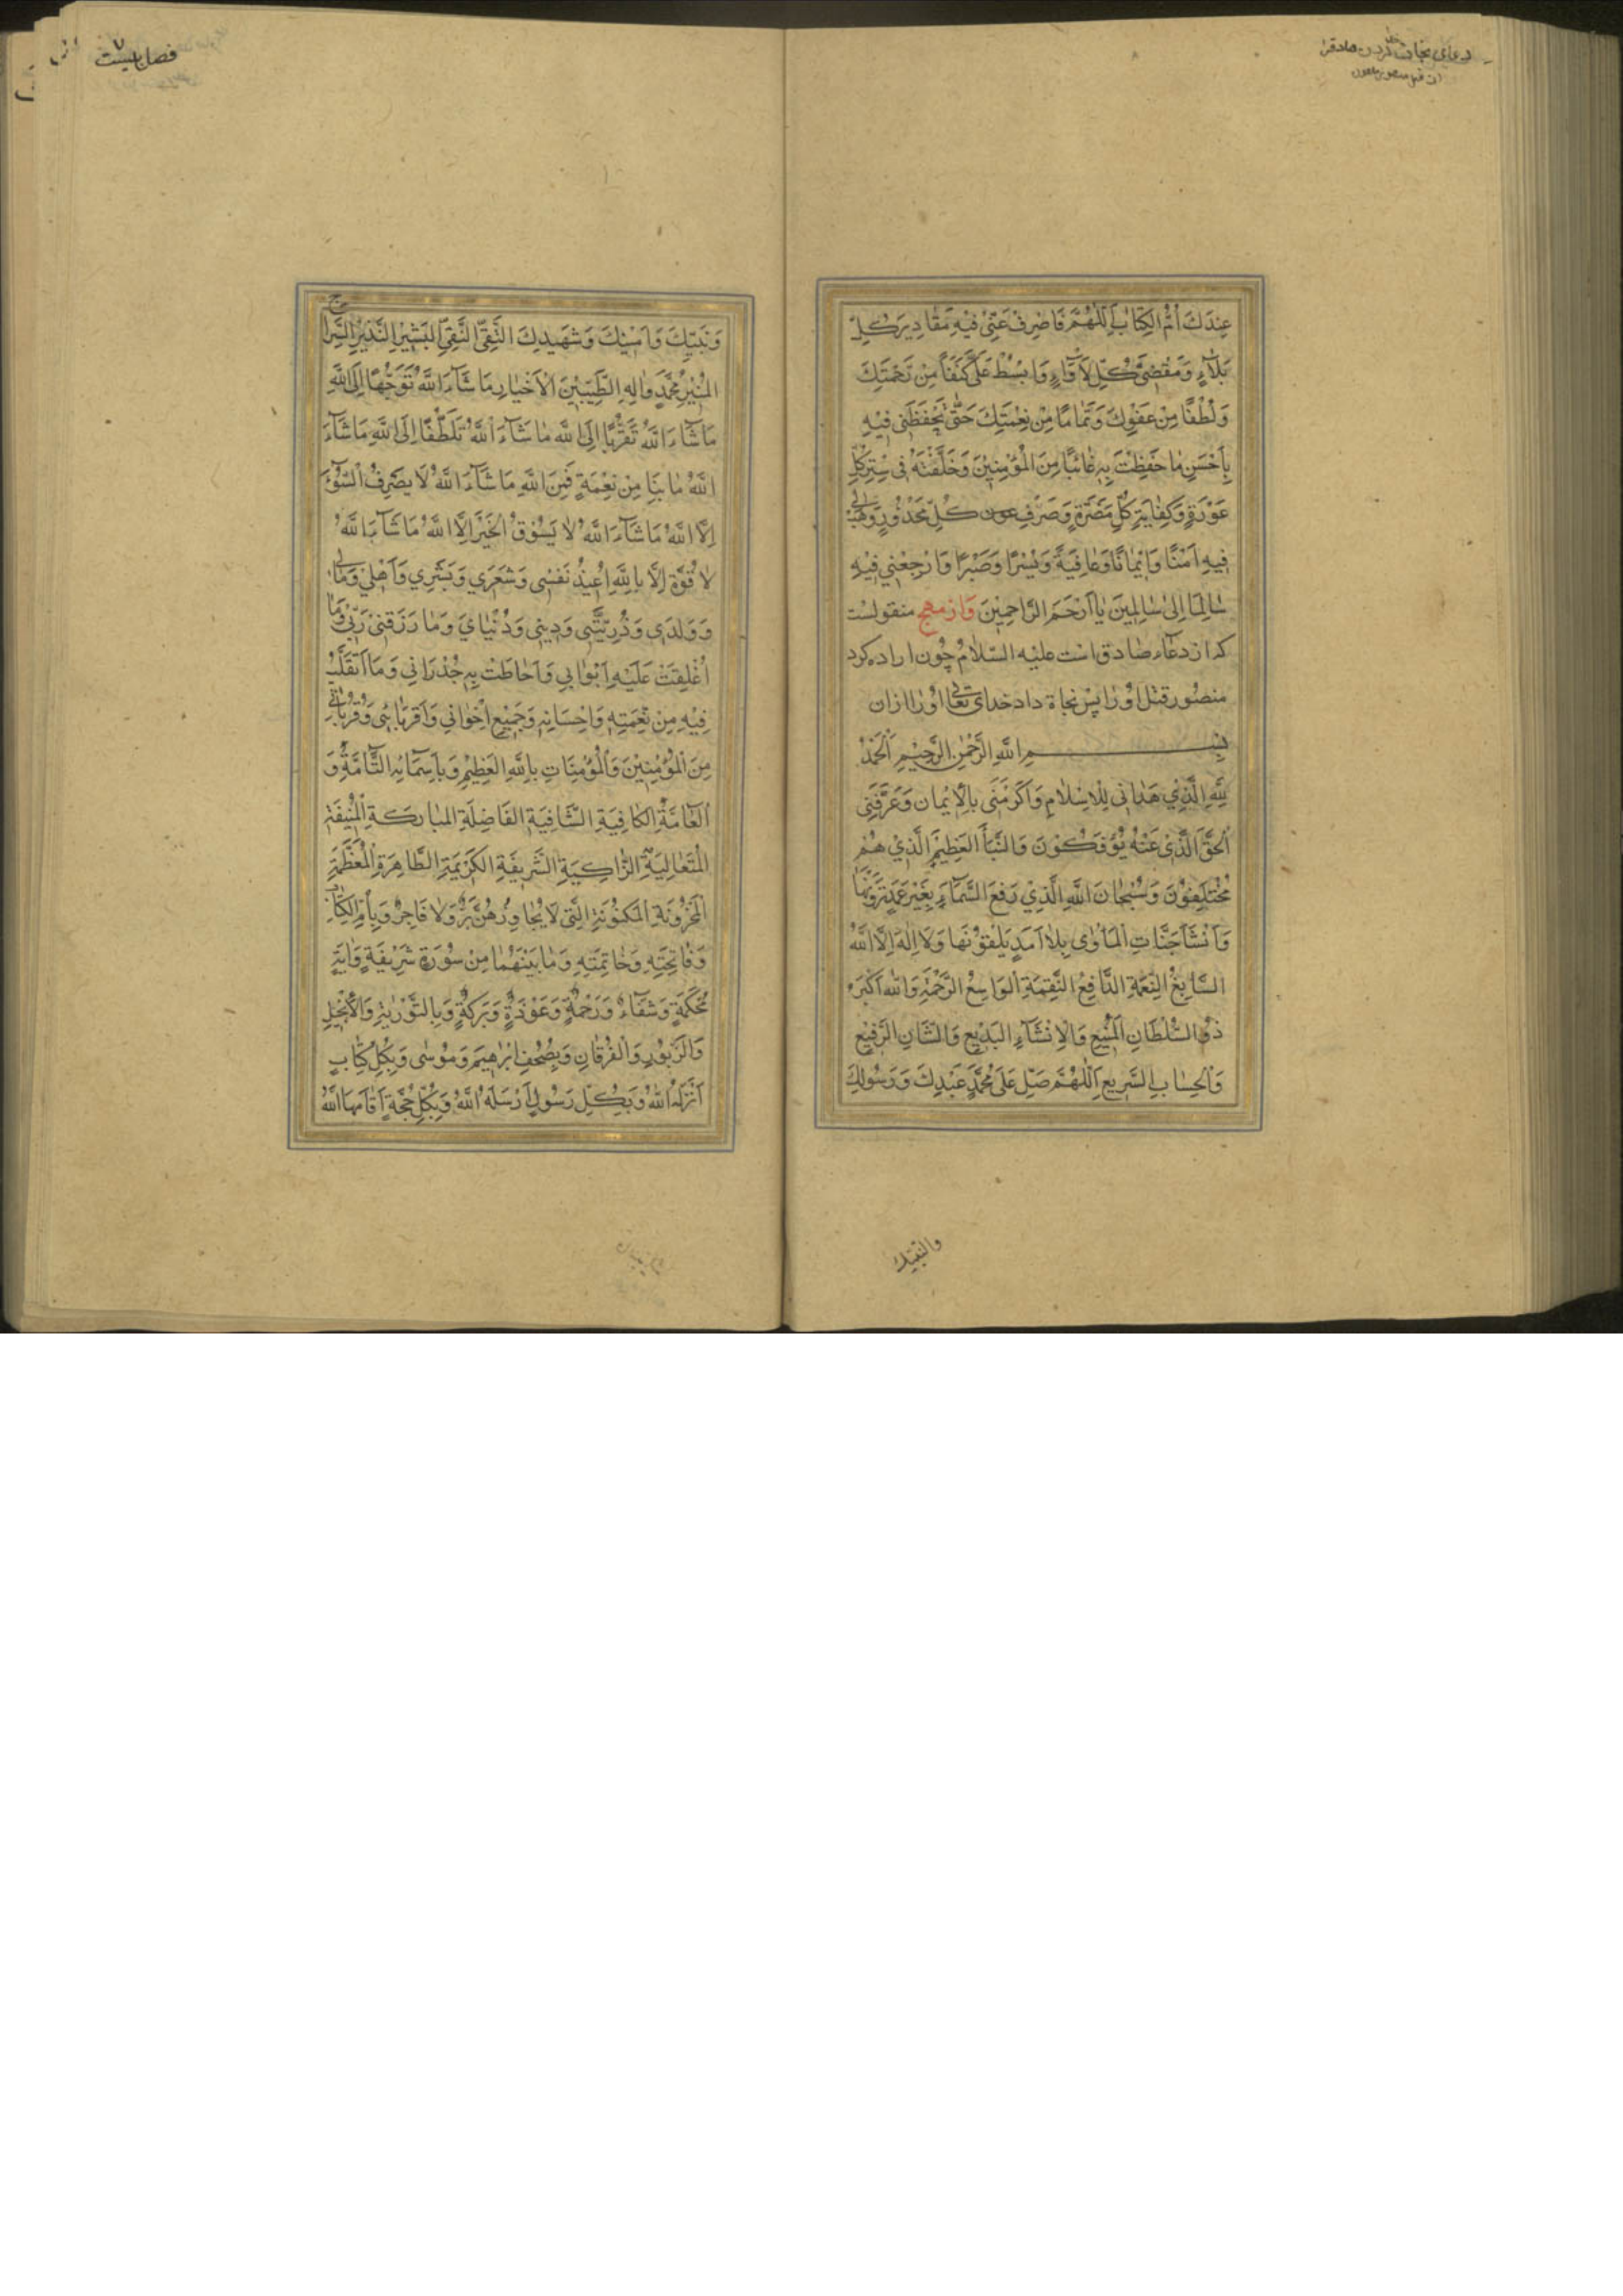 دعای نجات کردن صادق
عِنْدَكَ اُمُّ الْكِتَابِ اَللّٰهُمَّ فَاصْرِفْ عَنِّي فِيْهِ مَقَادِيرَ كُلِّ
بَلَآءٍ وَمَقْضِيَّ كُلِّ لَأْوَآءٍ وَابْسُطْ عَلَيَّ كَنَفًا مِنْ رَحْمَتِكَ
وَلُطْفًا مِنْ عَفْوِكَ وَتَمَامًا مِنْ نِعْمَتِكَ حَتّٰى تَحْفَظَنِي فِيْهِ
بِاَحْسَنِ مَا حَفِظْتَ بِهٖ غَائِبًا مِنَ الْمُؤْمِنِيْنَ وَخَلَّفْتَهُ فِي سِتْرِ كُلِّ
عَوْرَةٍ وَكِفَايَةِ كُلِّ مَضَرَّةٍ وَصَرْفِ كُلِّ مَحْذُورٍ وَهَبْ لِي
فِيهِ اَمْنًا وَاِيْمَانًا وَعَافِيَةً وَيُسْرًا وَصَبْرًا وَارْجِعْنِي فِيْهِ
سَالِمًا اِلٰى سَالِمِينَ يَا اَرْحَمَ الرَّاحِمِيْنَ وَاز مهج منقولست
كه از دعاء صادق است عليه السّلام چون اراده كرد
منصور قتل او را پس نجاة داد خداى تعالى او را ازان
بِسْمِ اللهِ الرَّحْمٰنِ الرَّحِيْمِ اَلْحَمْدُ
لِلّٰهِ الَّذِي هَدَانِي لِلْاِسْلَامِ وَاَكْرَمَنِي بِالْاِيْمَانِ وَعَرَّفَنِي
اَلْحَقَّ الَّذِي عَنْهُ يُؤْفَكُوْنَ وَالنَّبَأَ الْعَظِيْمَ الَّذِي هُمْ
مُخْتَلِفُوْنَ وَسُبْحَانَ اللّٰهِ الَّذِي رَفَعَ السَّمَآءَ بِغَيْرِ عَمَدٍ تَرَوْنَهَا
وَاَنْشَأَ جَنَّاتِ الْمَأْوٰى بِلَا اَمَدٍ يَلْقَوْنَهَا وَلَا اِلٰهَ اِلَّا اللّٰهُ
السَّابِغُ النِّعْمَةِ الدَّافِعُ النَّقِمَةِ الْوَاسِعُ الرَّحْمَةِ وَاللّٰهُ اَكْبَرُ
ذُو السُّلْطَانِ الْمَنِيعِ وَالْاِنْشَآءِ الْبَدِيعِ وَالشَّانِ الرَّفِيْعِ
وَالْحِسَابِ السَّرِيعِ اَللّٰهُمَّ صَلِّ عَلٰى مُحَمَّدٍ عَبْدِكَ وَرَسُولِكَ
فصل بیست
وَنَبِيِّكَ وَاَمِيْنِكَ وَشَهِيدِكَ التَّقِيِّ النَّقِيِّ الْبَشِيْرِ النَّذِيْرِ السِّرَاج
الْمُنِيْرِ مُحَمَّدٍ وَاٰلِهِ الطَّيِّبِيْنَ الْاَخْيَارِ مَا شَآءَ اللّٰهُ تَوَجُّهًا اِلَى اللّٰهِ
مَا شَآءَ اللّٰهُ تَقَرُّبًا اِلَى اللّٰهِ مَا شَآءَ اللّٰهُ تَلَطُّفًا اِلَى اللّٰهِ مَا شَآءَ
اللّٰهُ مَا بِنَا مِنْ نِعْمَةٍ فَمِنَ اللّٰهِ مَا شَآءَ اللّٰهُ لَا يَصْرِفُ السُّوْءَ
اِلَّا اللّٰهُ مَا شَآءَ اللّٰهُ لَا يَسُوْقُ الْخَيْرَ اِلَّا اللّٰهُ مَا شَآءَ اللّٰهُ
لَا قُوَّةَ اِلَّا بِاللّٰهِ اُعِيْذُ نَفْسِي وَشَعْرِي وَبَشَرِي وَاَهْلِيْ وَمَالِي
وَوَلَدِي وَذُرِّيَّتِي وَدِيْنِي وَدُنْيَايَ وَمَا رَزَقَنِيْ رَبِّيْ وَمَا
اُغْلِقَتْ عَلَيْهِ اَبْوَابِي وَاَحَاطَتْ بِهٖ جُدْرَانِي وَمَا اَتَقَلَّبُ
فِيْهِ مِنْ نِعْمَتِهٖ وَاِحْسَانِهٖ وَجَمِيْعِ اِخْوَانِي وَاَقْرِبَائِي وَقُرَابَاتِي
مِنَ الْمُؤْمِنِيْنَ وَالْمُؤْمِنَاتِ بِاللّٰهِ الْعَظِيْمِ وَبِاَسْمَآئِهِ التَّآمَّةِ وَ
الْعَامَّةِ الْكَافِيَةِ الشَّافِيَةِ الْفَاضِلَةِ الْمُبَارَكَةِ الْمُنِيْفَةِ
الْمُتَعَالِيَةِ الزَّاكِيَةِ الشَّرِيفَةِ الْكَرِيْمَةِ الطَّاهِرَةِ الْمُعَظَّمَةِ
الْمَخْزُوْنَةِ الْمَكْنُوْنَةِ الَّتِي لَا يُجَاوِزُهُنَّ بَرٌّ وَلَا فَاجِرٌ وَبِاُمِّ الْكِتَابِ
وَفَاتِحَتِهٖ وَخَاتِمَتِهٖ وَمَا بَيْنَهُمَا مِنْ سُوْرَةٍ شَرِيْفَةٍ وَاٰيَةٍ
مُحْكَمَةٍ وَشِفَآءٍ وَرَحْمَةٍ وَعَوْذَةٍ وَبَرَكَةٍ وَبِالتَّوْرٰيةِ وَالْاِنْجِيْلِ
وَالزَّبُوْرِ وَالْفُرْقَانِ وَبِصُحُفِ اِبْرٰهِيْمَ وَمُوْسٰى وَبِكُلِّ كِتَابٍ
اَنْزَلَهُ اللّٰهُ وَبِكُلِّ رَسُوْلٍ اَرْسَلَهُ اللّٰهُ وَبِكُلِّ حُجَّةٍ اَقَامَهَا اللّٰهُ